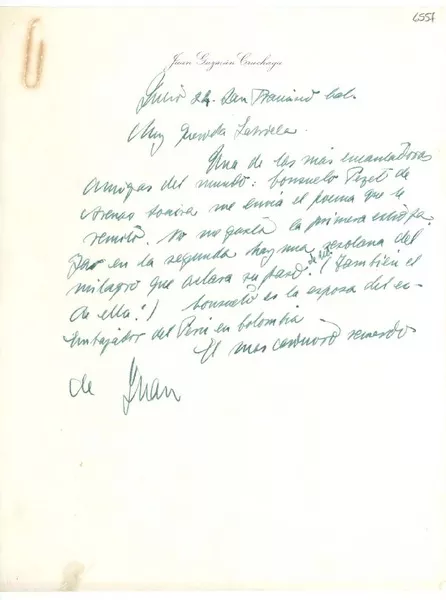 6557
Juan Guzmán Cruchaga
Julio 22. San Francisco Cal.
Muy querida Gabriela:
Una de las más encantadoras
amigas del mundo: Consuelo Pezet de
Arenas Loayza me envía el poema que le
remito. No me gusta la primera estrofa.
Pero en la segunda hay una
milagro que aclara su pasado. (También el
de ella!) Consuelo es la esposa del ex-
Embajador del Perú en Colombia
El más cariñoso recuerdo
de Juan